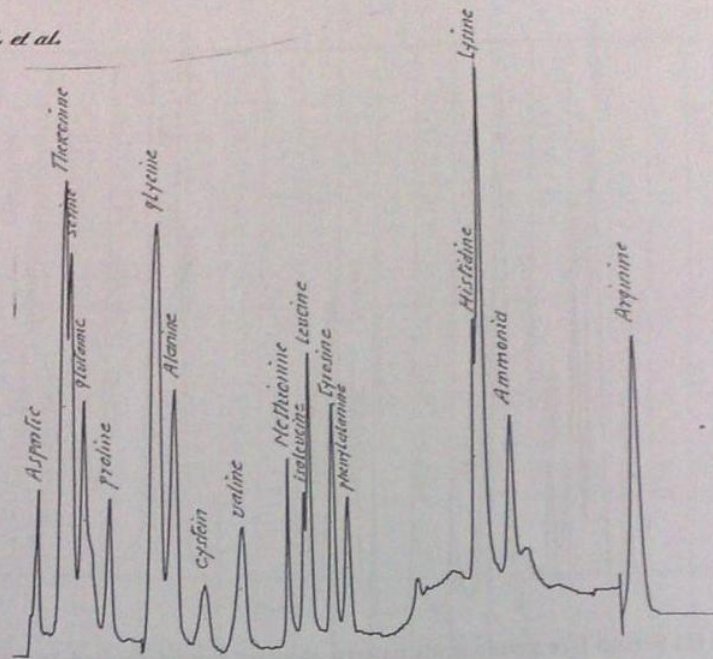 et al.
Aspartic
Threonine
serine
glutamic
proline
glycine
Alanine
cystein
valine
Methionine
isoleucine
Leucine
Tyrosine
phenylalanine
Histidine
Lysine
Ammonia
Arginine